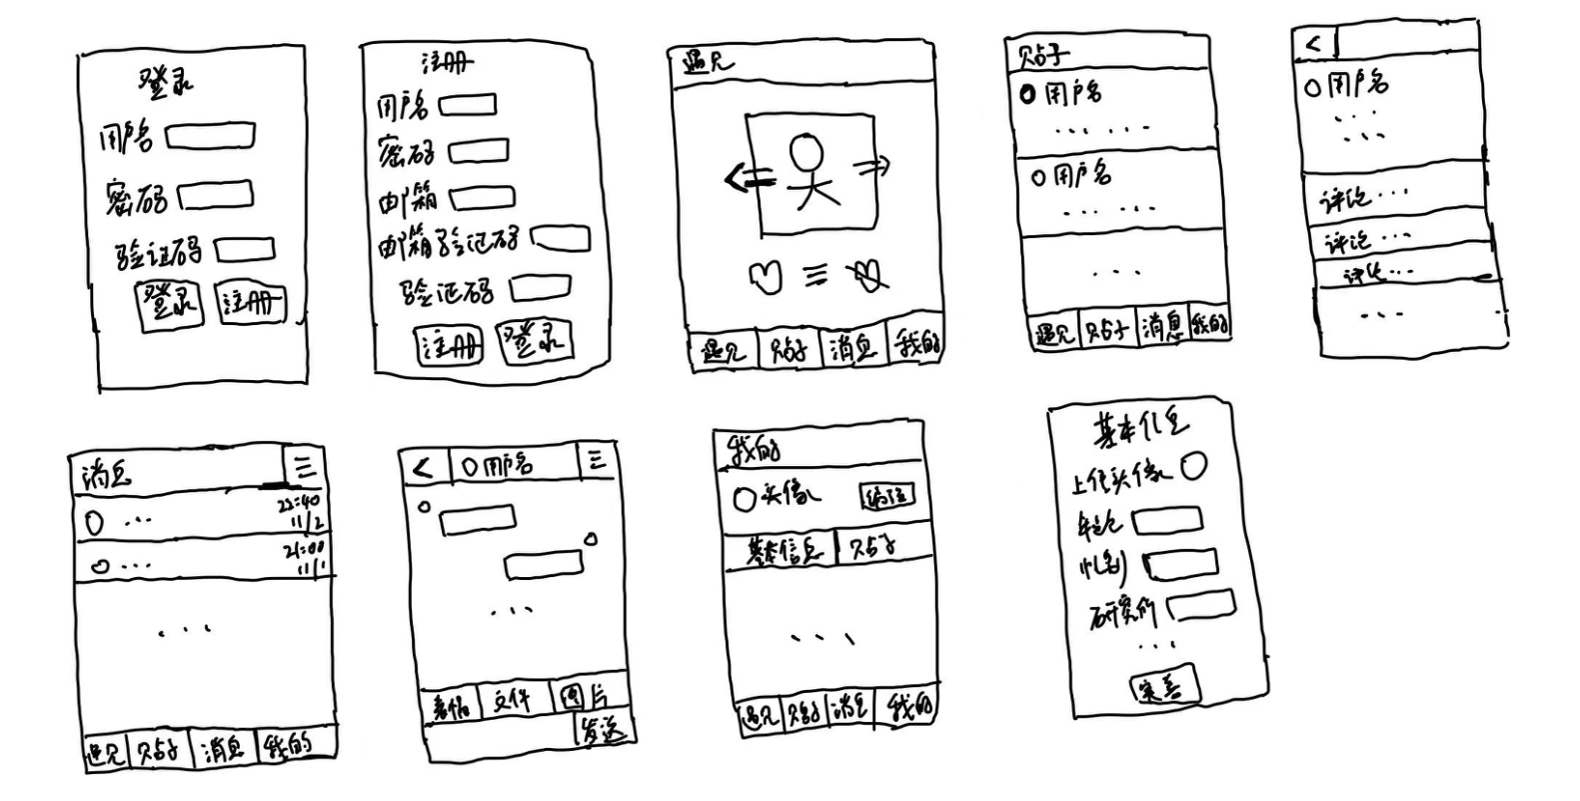 登录
用户名
密码
验证码
登录 注册
注册
用户名
密码
邮箱
邮箱验证码
验证码
注册 登录
遇见
遇见 贴子 消息 我的
贴子
用户名
... ...
用户名
... ...
...
遇见 贴子 消息 我的
<
用户名
...
...
评论...
评论...
评论...
...
消息
... 22:40
11/2
... 21:00
11/1
...
遇见 贴子 消息 我的
< 用户名
...
表情 文件 图片
发送
我的
头像 编辑
基本信息 贴子
...
遇见 贴子 消息 我的
基本信息
上传头像
年龄
性别
研究所
...
完善